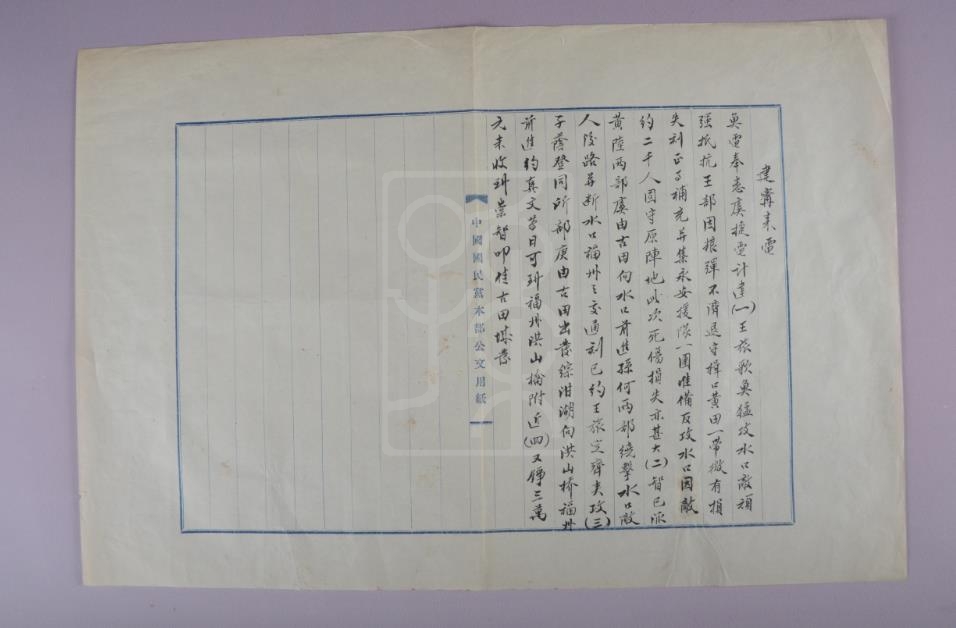 建甯来電
奐電奉悉虞捷電計達(一)王旅歌奐猛攻水口敵頑
强抵抗王部因糧彈不濟退守樟口黄田一帶微有損
失刻正事補充并集永安援隊一團准備反攻水口因敵
約二千人固守原陣地此次死傷損失亦甚大(二)智已派
黄陸兩部虞由古田向水口前進孫何兩部繞擊水口敵
人後路并断水口福州之交通刻已約王旅定齊夾攻(三)
子蔭登同所部庚由古田出發綜泔湖向洪山橋福州
前進約真文等日可到福州洪山橋附近(四)又㠪三萬
元未收到崇智叩佳古田堪發
中國國民黨本部公文用紙